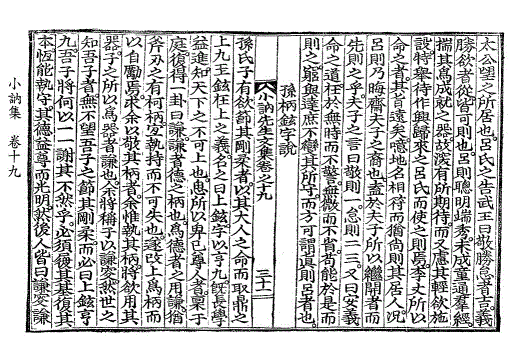 太公望之所居也呂氏之告武王曰敬勝怠者吉義
勝欲者從皆可則也呂則聰明端秀未成童通羣經
揣其爲成就之器故深有所期待而又慮其輕欲施
設特擧待作興歸來之呂氏而使之則焉李丈所以
命之者其旨遠矣噫地名相符而猶尙則其居人況
呂則乃晦齋夫子之裔也盍於夫子所以繼開者而
先則之乎夫子之言曰敬則一怠則二三又曰安義
命之道在於無時而不警無微而不省苟能於是而
則之窮與達庶不變其所守而方可謂眞則呂者也
孫柄鉉字說
小訥先生文集卷之十九
三十一
孫氏子有欲節其剛柔者以其大人之命而取鼎之
上九玉鉉在上之義名之曰上鉉字以亨九旣長學
益進知天下之不可上也思所以卑己尊人者稟于
庭復得一卦曰謙謙者德之柄也爲德者之用謙猶
斧刃之有柯柄宜執持而不可失也遂改上爲柄而
以自勵焉來余以敬其柄者余惟執其柄將欲用其
器子之所以爲器者謙也余將稱子以謙叟然世之
知吾子者無不望吾子之節其剛柔而必曰上鉉亨
九吾子將何以一謝其不然乎必須復其基復其
本恒能執守其德益尊而光明然後人皆曰謙叟謙
小訥集 卷十九